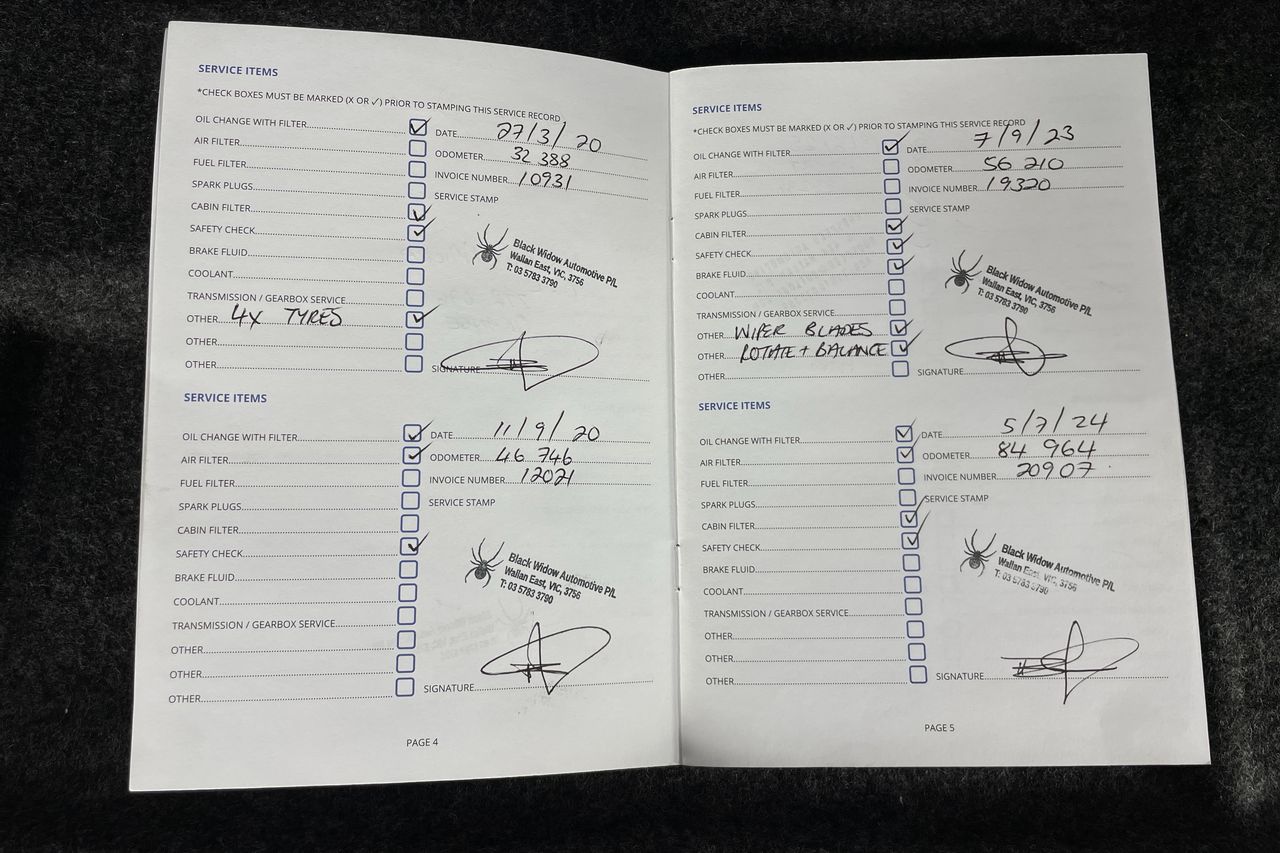 SERVICE ITEMS
*CHECK BOXES MUST BE MARKED (X OR ✓) PRIOR TO STAMPING THIS SERVICE RECORD
OIL CHANGE WITH FILTER ✓ DATE 27/3/20
AIR FILTER ODOMETER 32 388
FUEL FILTER INVOICE NUMBER 10931
SPARK PLUGS SERVICE STAMP
CABIN FILTER ✓
SAFETY CHECK ✓
BRAKE FLUID
COOLANT
TRANSMISSION / GEARBOX SERVICE
OTHER 4X TYRES ✓
OTHER
OTHER
Black Widow Automotive P/L
Wallan East, VIC, 3756
T: 03 5783 3790
SIGNATURE
SERVICE ITEMS
OIL CHANGE WITH FILTER ✓ DATE 11/9/20
AIR FILTER ✓ ODOMETER 46 746
FUEL FILTER INVOICE NUMBER 12021
SPARK PLUGS SERVICE STAMP
CABIN FILTER
SAFETY CHECK ✓
BRAKE FLUID
COOLANT
TRANSMISSION / GEARBOX SERVICE
OTHER
OTHER
OTHER
Black Widow Automotive P/L
Wallan East, VIC, 3756
T: 03 5783 3790
SIGNATURE
PAGE 4
SERVICE ITEMS
*CHECK BOXES MUST BE MARKED (X OR ✓) PRIOR TO STAMPING THIS SERVICE RECORD
OIL CHANGE WITH FILTER ✓ DATE 7/9/23
AIR FILTER ODOMETER 56 210
FUEL FILTER INVOICE NUMBER 19320
SPARK PLUGS SERVICE STAMP
CABIN FILTER ✓
SAFETY CHECK ✓
BRAKE FLUID ✓
COOLANT
TRANSMISSION / GEARBOX SERVICE
OTHER WIPER BLADES ✓
OTHER ROTATE + BALANCE ✓
OTHER
Black Widow Automotive P/L
Wallan East, VIC, 3756
T: 03 5783 3790
SIGNATURE
SERVICE ITEMS
OIL CHANGE WITH FILTER ✓ DATE 5/7/24
AIR FILTER ✓ ODOMETER 84 964
FUEL FILTER INVOICE NUMBER 20907
SPARK PLUGS SERVICE STAMP
CABIN FILTER ✓
SAFETY CHECK ✓
BRAKE FLUID
COOLANT
TRANSMISSION / GEARBOX SERVICE
OTHER
OTHER
OTHER
Black Widow Automotive P/L
Wallan East, VIC, 3756
T: 03 5783 3790
SIGNATURE
PAGE 5